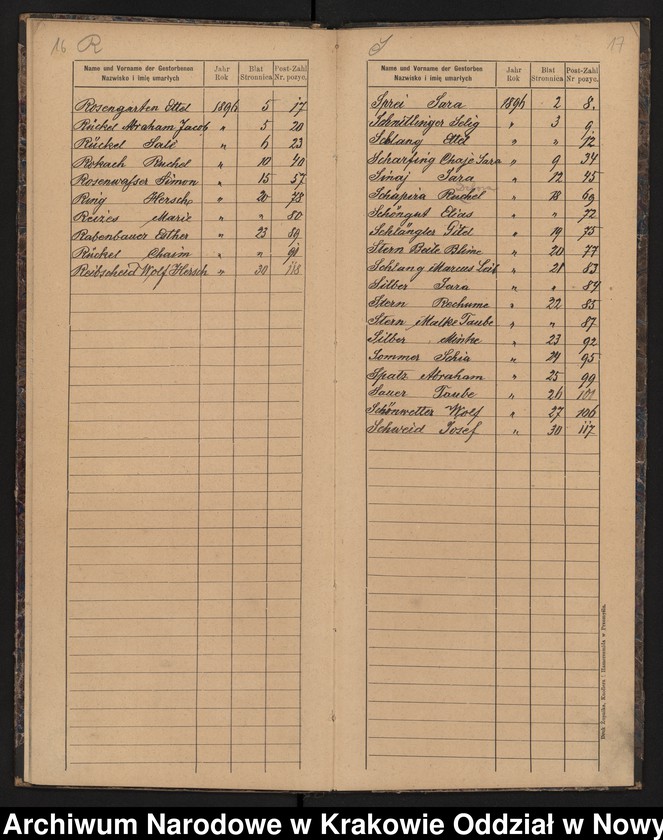 16 R
Name und Vorname der Gestorbenen
Nazwisko i imię umarłych
Jahr
Rok
Blat
Stronnica
Post-Zahl
Nr. pozyc.
Rosengarten Ettel 1896 5 17
Rückel Abraham Jacob " 5 20
Rückel Sali " 6 23
Rokach Ruchel " 10 40
Rosenwasser Simon " 15 57
Ring Hersch " 20 78
Reizes Marie " " 80
Rabenbauer Esther " 23 89
Rückel Chaim " " 91
Reibscheid Wolf Hersch " 30 118
S 17
Name und Vorname der Gestorbenen
Nazwisko i imię umarłych
Jahr
Rok
Blat
Stronnica
Post-Zahl
Nr. pozyc.
Sprei Sara 1896 2 8.
Schnitlinger Selig " 3 9
Schlang Ettel " " 12
Scharfing Chaje Sara " 9 34
Sinaj Sara " 12 45
Schapira Ruchel " 18 69
Schöngut Elias " " 72
Schlängler Gitel " 19 75
Stern Beile Blime " 20 77
Schlang Marcus Leib " 21 83
Silber Sara " " 84
Stern Rechume " 22 85
Stern Malke Taube " " 87
Silber Minke " 23 92
Sommer Schia " 24 95
Spatz Abraham " 25 99
Sauer Taube " 26 101
Schönwetter Wolf " 27 106
Schweid Josef " 30 117
Archiwum Narodowe w Krakowie Oddział w Nowy